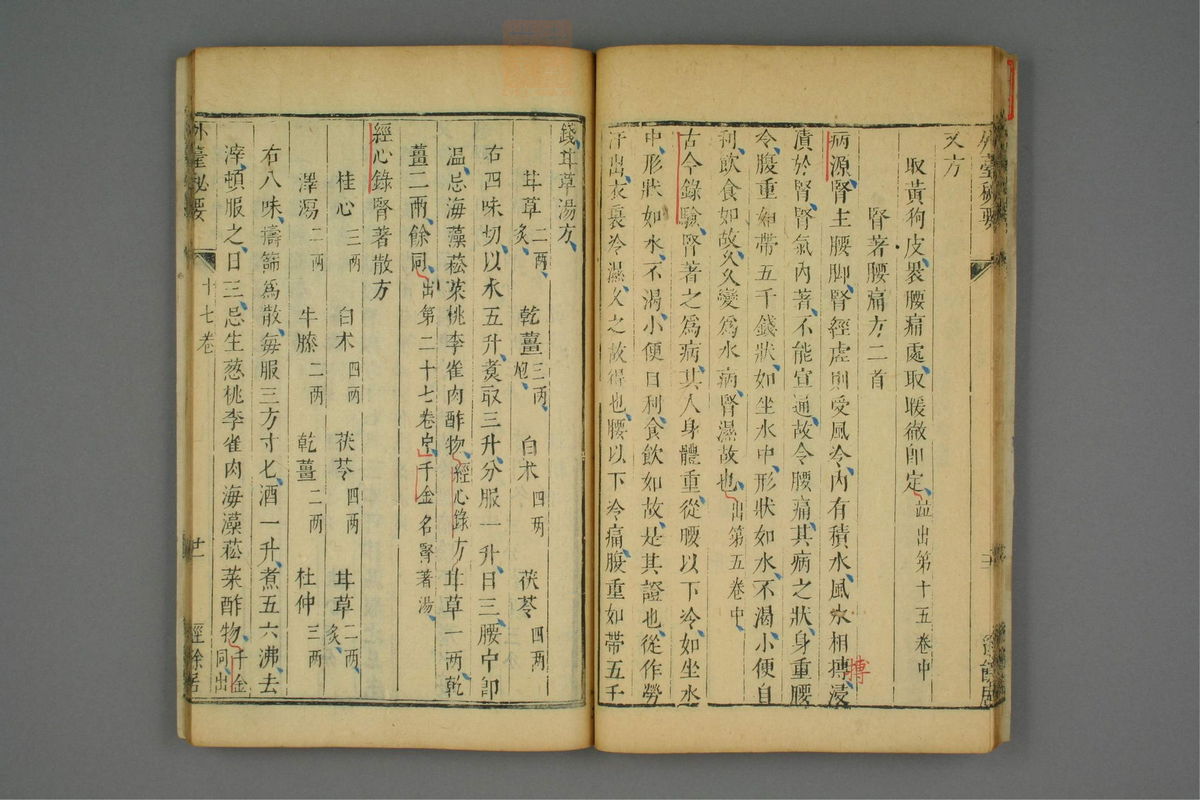 外臺秘要
又方
取黃狗皮裹腰痛處取暖徹即定並出第十五卷中
腎著腰痛方二首
病源腎主腰脚腎經虛則受風冷内有積水風水相搏浸
搏
漬於腎腎氣内著不能宣通故令腰痛其病之狀身重腰
冷腹重如帶五千錢狀如坐水中形狀如水不渴小便自
利飲食如故久久變為水病腎濕故也出第五卷中
古今錄驗腎著之為病其人身體重從腰以下冷如坐水
中形狀如水不渴小便自利食飲如故是其證也從作勞
汗出衣裏冷濕久之故得也腰以下冷痛腹重如帶五千
錢甘草湯方
甘草二兩炙 乾薑三兩炮 白朮四兩 茯苓四兩
右四味切以水五升煮取三升分服一升日三腰中即
温忌海藻菘菜桃李雀肉酢物經心錄方甘草一兩乾
薑二兩餘同出第二十七卷中千金名腎著湯
經心錄腎著散方
桂心三兩 白朮四兩 茯苓四兩 甘草二兩炙
澤瀉二兩 牛膝二兩 乾薑二兩 杜仲三兩
右八味擣篩為散每服三方寸匕酒一升煮五六沸去
滓頓服之日三忌生葱桃李雀肉海藻菘菜酢物千金同出
外臺秘要 十七卷 廿一 經餘居